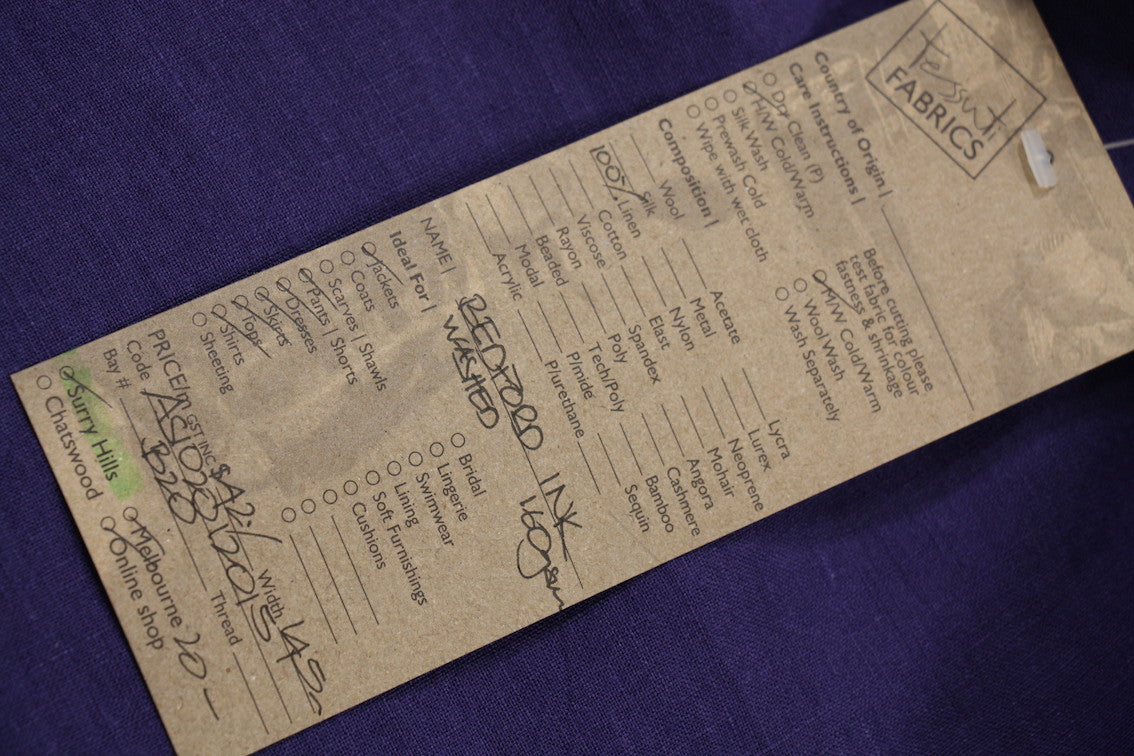 tessuti
FABRICS
Country of Origin |
Care Instructions |
Dry Clean (P)
H/W Cold/Warm
Silk Wash
Prewash Cold
Wipe with wet cloth
Before cutting please
test fabric for colour
fastness & shrinkage
H/W Cold/Warm
Wool Wash
Wash Separately
Composition |
Wool
Silk
100% Linen
Cotton
Viscose
Rayon
Beaded
Modal
Acrylic
Acetate
Metal
Nylon
Elast
Spandex
Poly
Tech/Poly
P/mide
P/urethane
Lycra
Lurex
Neoprene
Mohair
Angora
Cashmere
Bamboo
Sequin
NAME | REDFORD INK
WASHED 160gsm
Ideal For |
Jackets
Coats
Scarves | Shawls
Pants | Shorts
Dresses
Skirts
Tops
Shirts
Sheeting
Bridal
Lingerie
Swimwear
Lining
Soft Furnishings
Cushions
PRICE/m GST INC $ Width
Code
Bay # B28 Thread
Surry Hills Melbourne 20-
Chatswood Online shop